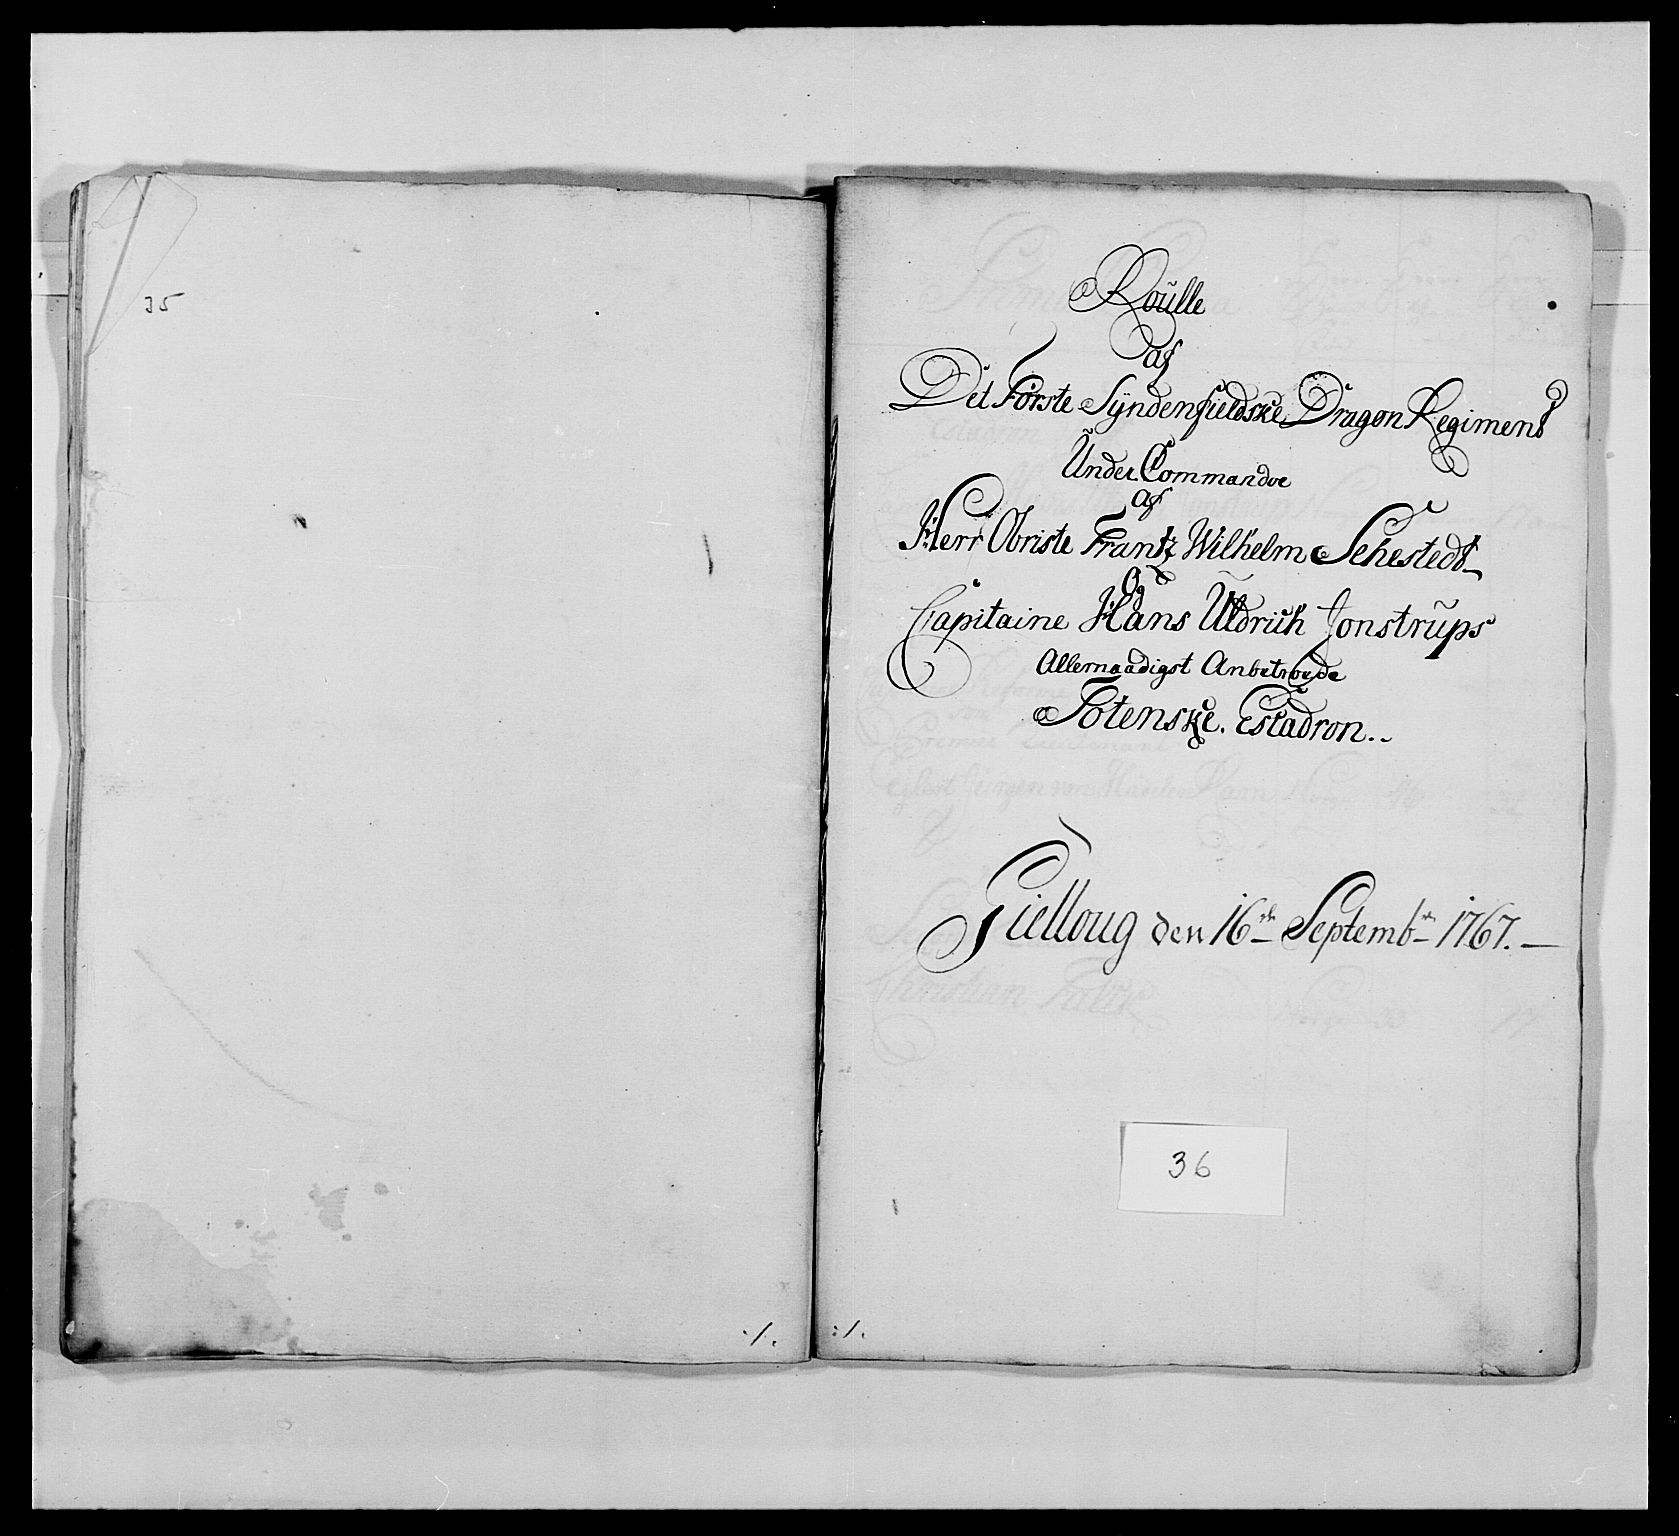 35
Roülle
af
Det Förste Syndenfieldske Dragon Regiment
Ünder Commandoe
af
Herr Obriste Frantz Wilhelm Sehestedt
Og
Capitaine Hans Üldrich Jonstrüps
Allernaadigst Anbetroede
Totenske Escadron..
Gielloug den 16de Septembr 1767.
36
./.
:/.